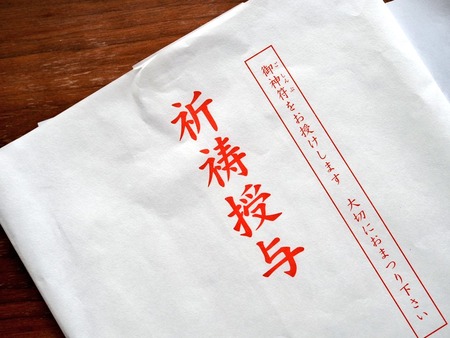 ごしんぷ
御神符をお授けします　大切におまつり下さい
祈祷授与